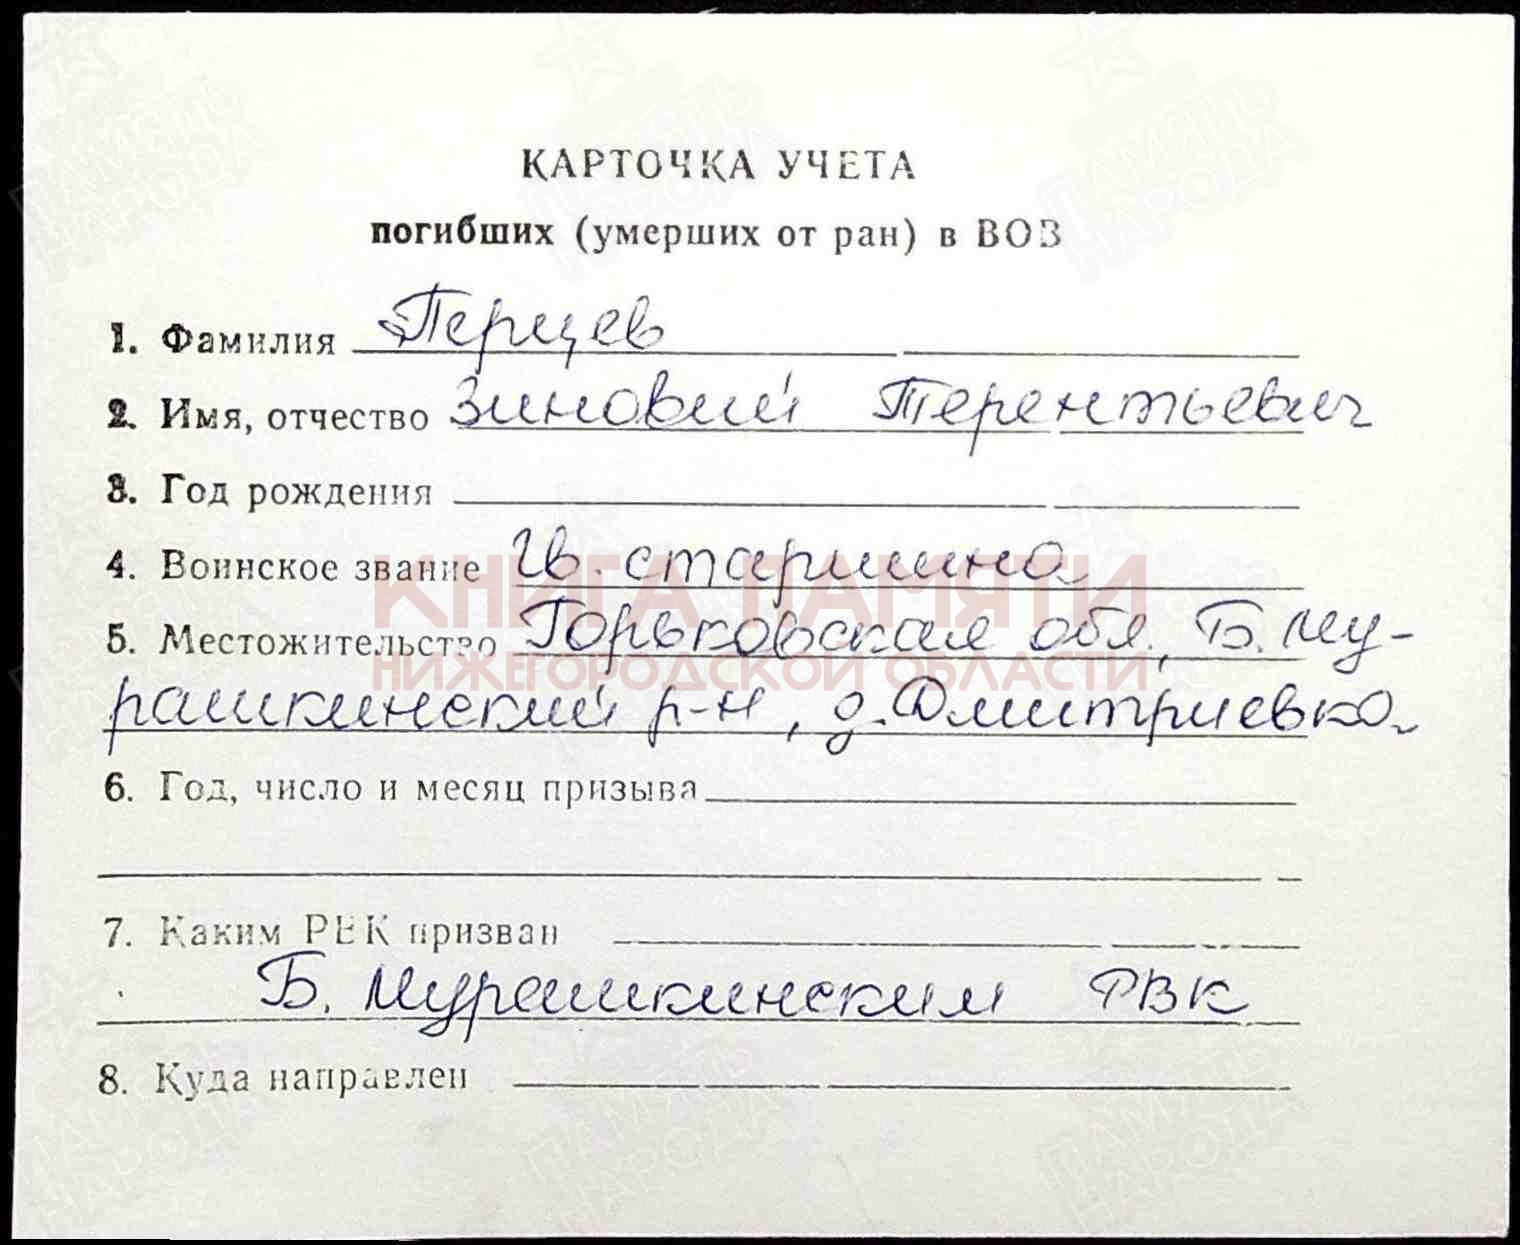 КАРТОЧКА УЧЕТА
погибших (умерших от ран) в ВОВ
1. Фамилия Перцев
2. Имя, отчество Зиновий Терентьевич
3. Год рождения
4. Воинское звание Гв. старшина
КНИГА ПАМЯТИ
5. Местожительство Горьковская обл., Б. Му-
НИЖЕГОРОДСКОЙ ОБЛАСТИ
рашкинский р-н, д. Дмитриевка
6. Год, число и месяц призыва
7. Каким РВК призван
Б. Мурашкинским РВК
8. Куда направлен
ПАМЯТЬ НАРОДА